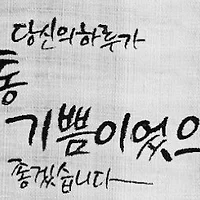 당신의 하루가
통
기쁨이었으
좋겠습니다